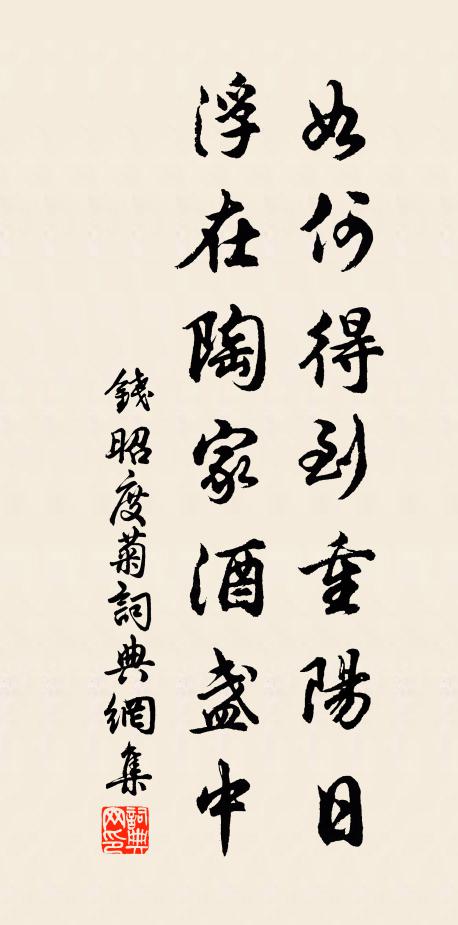 如何得到重陽日
浮在陶家酒盞中
錢昭度菊詞典網集
詞典网印